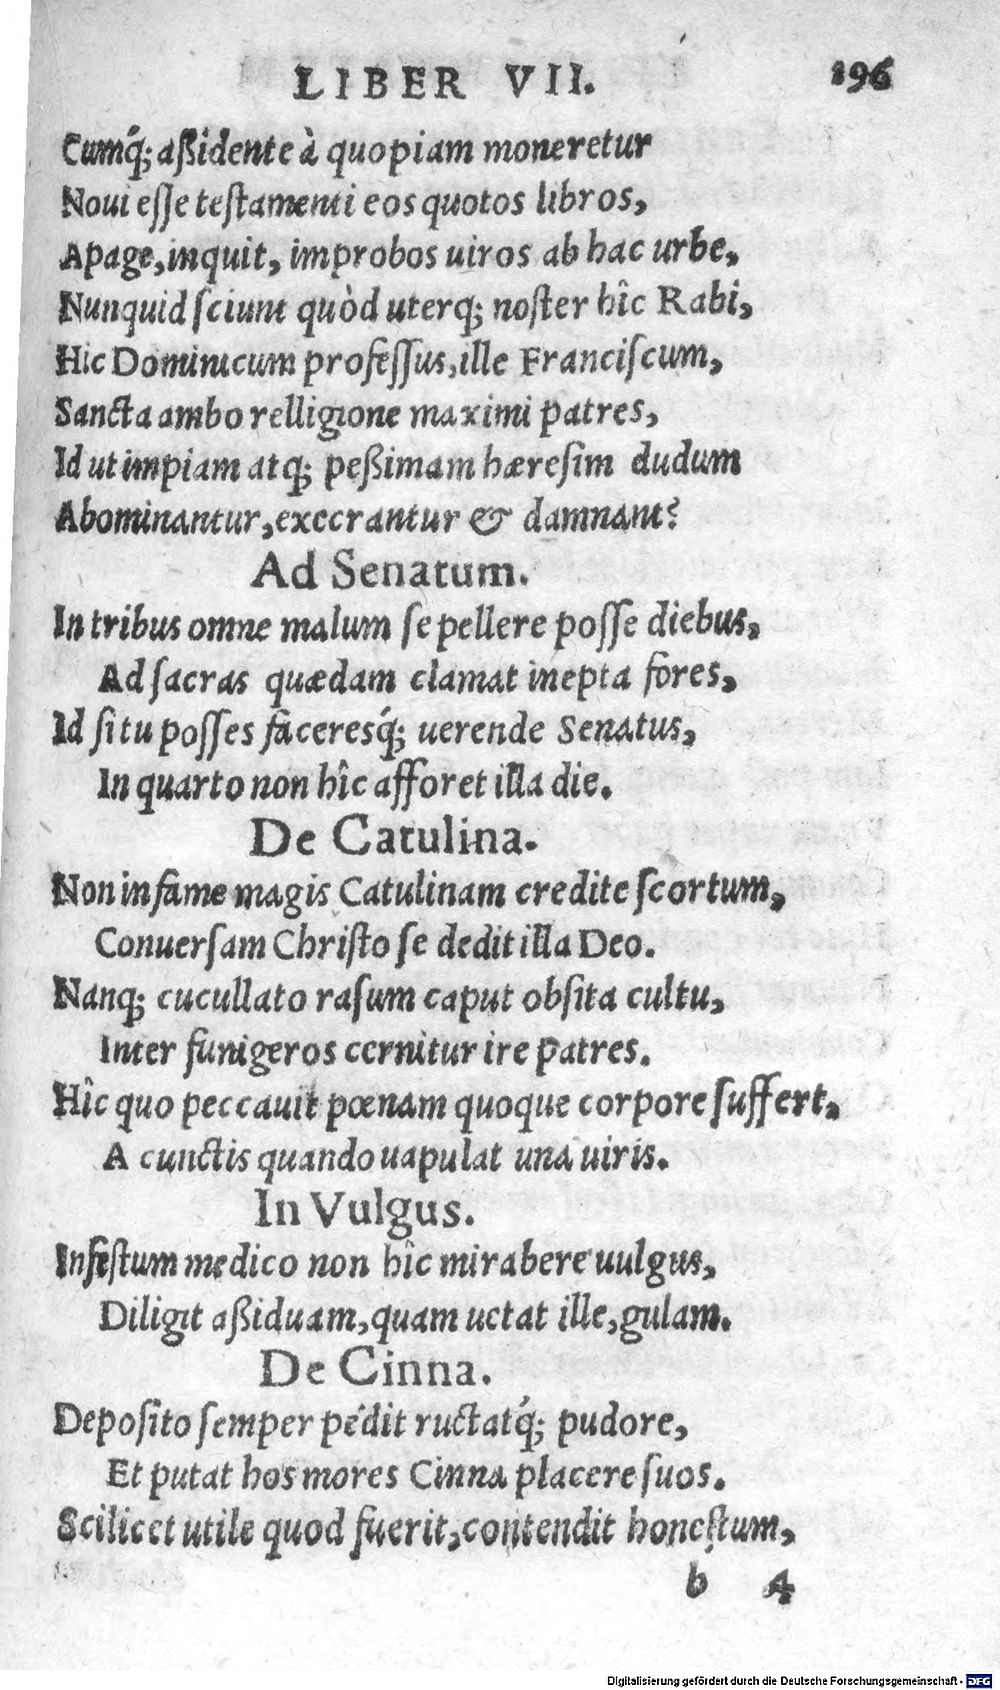 LIBER VII. 196
Cumq́; aßidente à quopiam moneretur
Noui eſſe teſtamenti eos quotos libros,
Apage, inquit, improbos uiros ab hac urbe,
Nunquid ſciunt quòd uterq; noſter hîc Rabi,
Hic Dominicum profeſſus, ille Franciſcum,
Sancta ambo relligione maximi patres,
Id ut impiam atq; peßimam hæreſim dudum
Abominantur, execrantur & damnant?
Ad Senatum.
In tribus omne malum ſe pellere poſſe diebus,
Ad ſacras quædam clamat inepta fores,
Id ſi tu poſſes faceresq́; uerende Senatus,
In quarto non hîc afforet illa die.
De Catulina.
Non infame magis Catulinam credite ſcortum,
Conuerſam Chriſto ſe dedit illa Deo.
Nanq; cucullato raſum caput obſita cultu,
Inter funigeros cernitur ire patres.
Hîc quo peccauit pœnam quoque corpore ſuffert,
A cunctis quando uapulat una uiris.
In Vulgus.
Infeſtum medico non hîc mirabere uulgus,
Diligit aßiduam, quam uetat ille, gulam.
De Cinna.
Depoſito ſemper pedit ructatq́; pudore,
Et putat hos mores Cinna placere ſuos.
Scilicet utile quod fuerit, contendit honeſtum,
b 4
Digitalisierung gefördert durch die Deutsche Forschungsgemeinschaft - DFG